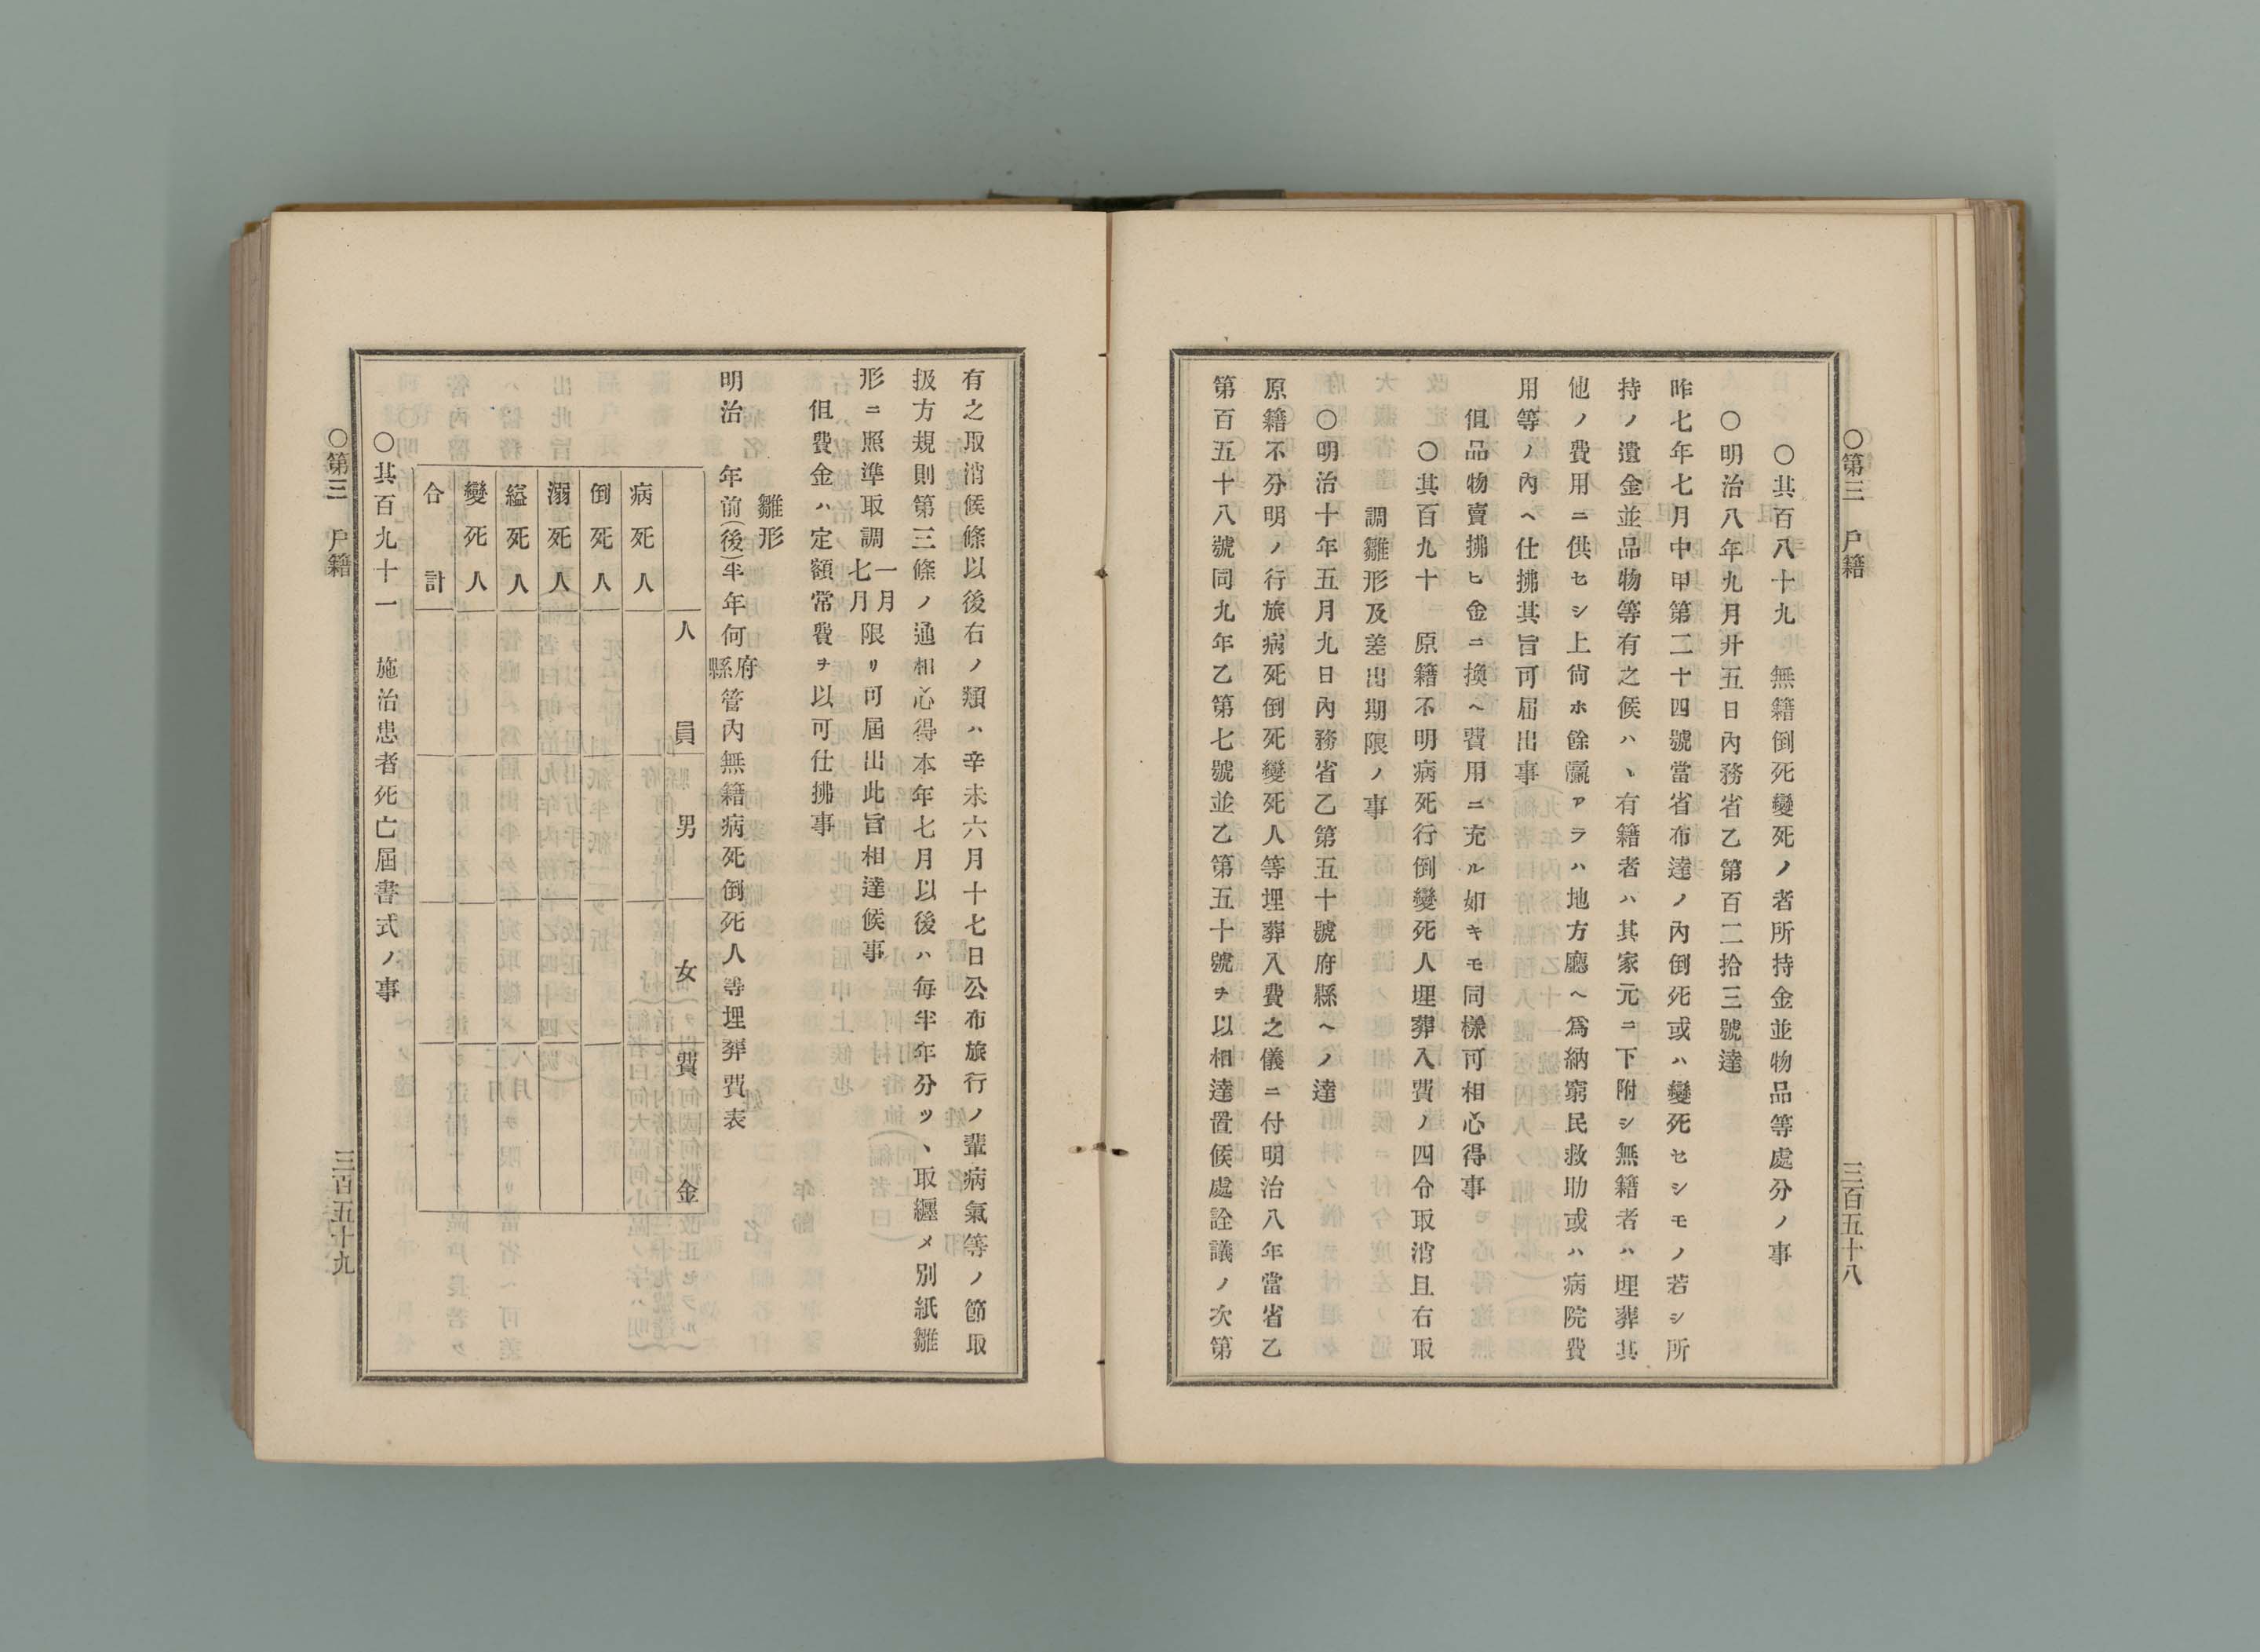 ○第三　戸籍
三百五十八
○其百八十九　無籍倒死變死ノ者所持金並物品等處分ノ事
○明治八年九月廿五日內務省乙第百二拾三號達
昨七年七月中甲第二十四號當省布達ノ內倒死或ハ變死セシモノ若シ所
持ノ遺金並品物等有之候ハヽ有籍者ハ其家元ニ下附シ無籍者ハ埋葬其
他ノ費用ニ供セシ上尙ホ餘贏アラハ地方廳ヘ爲納窮民救助或ハ病院費
用等ノ內ヘ仕拂其旨可届出事
但品物賣拂ヒ金ニ換ヘ費用ニ充ル如キモ同樣可相心得事
○其百九十　原籍不明病死行倒變死人埋葬入費ノ四令取消且右取
調雛形及差出期限ノ事
○明治十年五月九日內務省乙第五十號府縣ヘノ達
原籍不分明ノ行旅病死倒死變死人等埋葬入費之儀ニ付明治八年當省乙
第百五十八號同九年乙第七號並乙第五十號ヲ以相達置候處詮議ノ次第
有之取消候條以後右ノ類ハ辛未六月十七日公布旅行ノ輩病氣等ノ節取
扱方規則第三條ノ通相心得本年七月以後ハ每半年分ツヽ取纒メ別紙雛
形ニ照準取調一月七月限リ可屆出此旨相達候事
但費金ハ定額常費ヲ以可仕拂事
雛形
明治　年前(後)半年何府縣管內無籍病死倒死人等埋葬費表
人員　男　女　費金
病死人
倒死人
溺死人
縊死人
變死人
合計
○其百九十一　施治患者死亡屆書式ノ事
○第三　戸籍
三百五十九